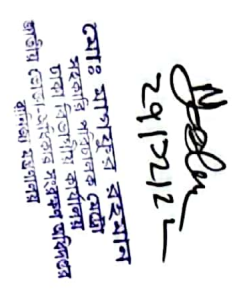 মোঃ মাগফুর রহমান
সহকারি পরিচালক (মেট্রো)
ঢাকা বিভাগীয় কার্যালয়
জাতীয় ভোক্তা-অধিকার সংরক্ষণ অধিদপ্তর
বাণিজ্য মন্ত্রণালয়